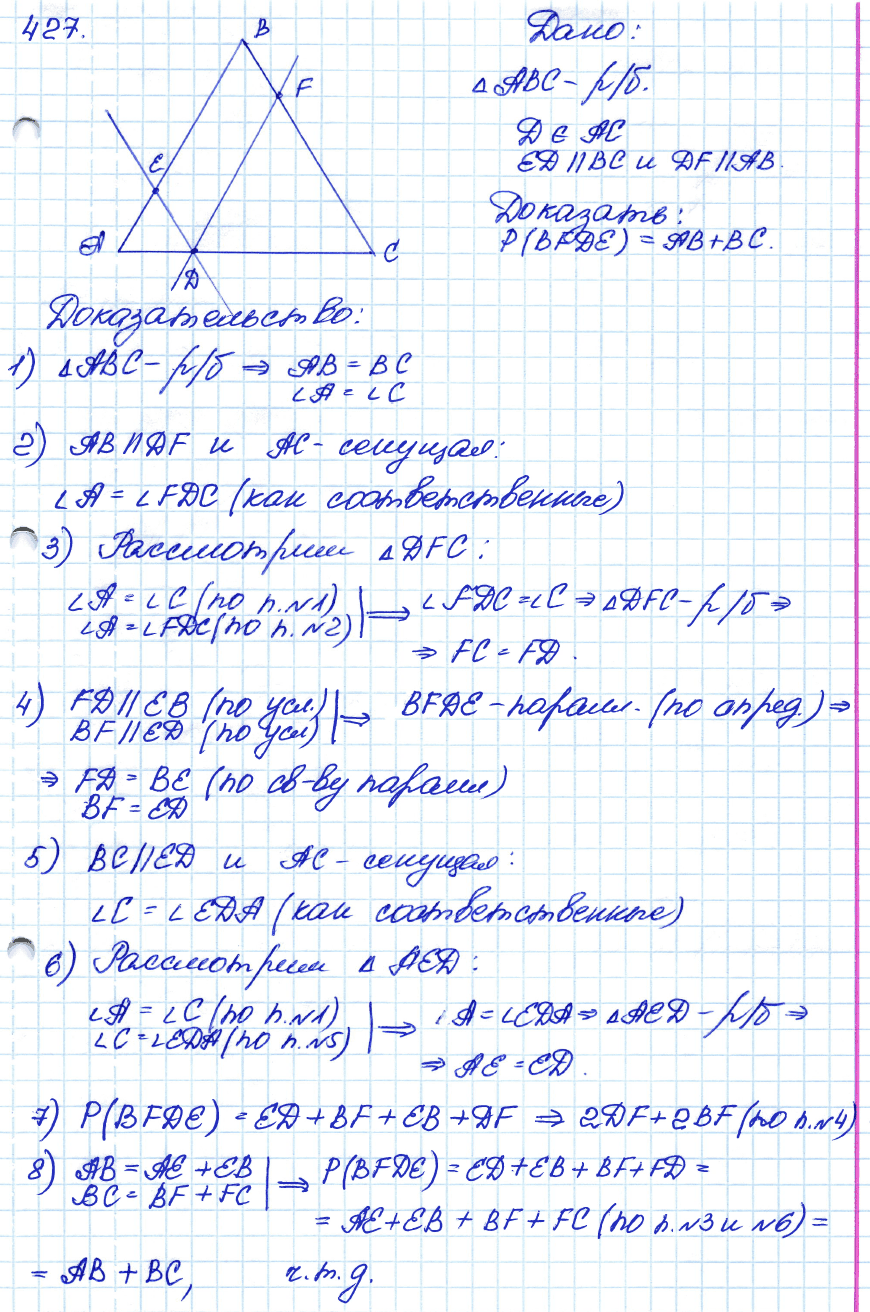 427.
B
F
E
A
D
C
Дано:
△ABC – р/б.
D ∈ AC
ED ∥ BC и DF ∥ AB.
Доказать:
P(BFDE) = AB + BC.
Доказательство:
1) △ABC – р/б ⇒ AB = BC
∠A = ∠C
2) AB ∥ DF и AC – секущая:
∠A = ∠FDC (как соответственные)
3) Рассмотрим △DFC:
∠A = ∠C (по п.№1) | ⇒ ∠FDC = ∠C ⇒ △DFC – р/б ⇒
∠A = ∠FDC (по п.№2)
⇒ FC = FD.
4) FD ∥ EB (по усл.) | ⇒ BFDE – паралл. (по опред.) ⇒
BF ∥ ED (по усл)
⇒ FD = BE (по св-ву паралл)
BF = ED
5) BC ∥ ED и AC – секущая:
∠C = ∠EDA (как соответственные)
6) Рассмотрим △AED:
∠A = ∠C (по п.№1) | ⇒ ∠A = ∠EDA ⇒ △AED – р/б ⇒
∠C = ∠EDA (по п.№5)
⇒ AE = ED.
7) P(BFDE) = ED + BF + EB + DF ⇒ 2DF + 2BF (по п.№4)
8) AB = AE + EB | ⇒ P(BFDE) = ED + EB + BF + FD =
BC = BF + FC
= AE + EB + BF + FC (по п.№3 и №6) =
= AB + BC, ч.т.д.